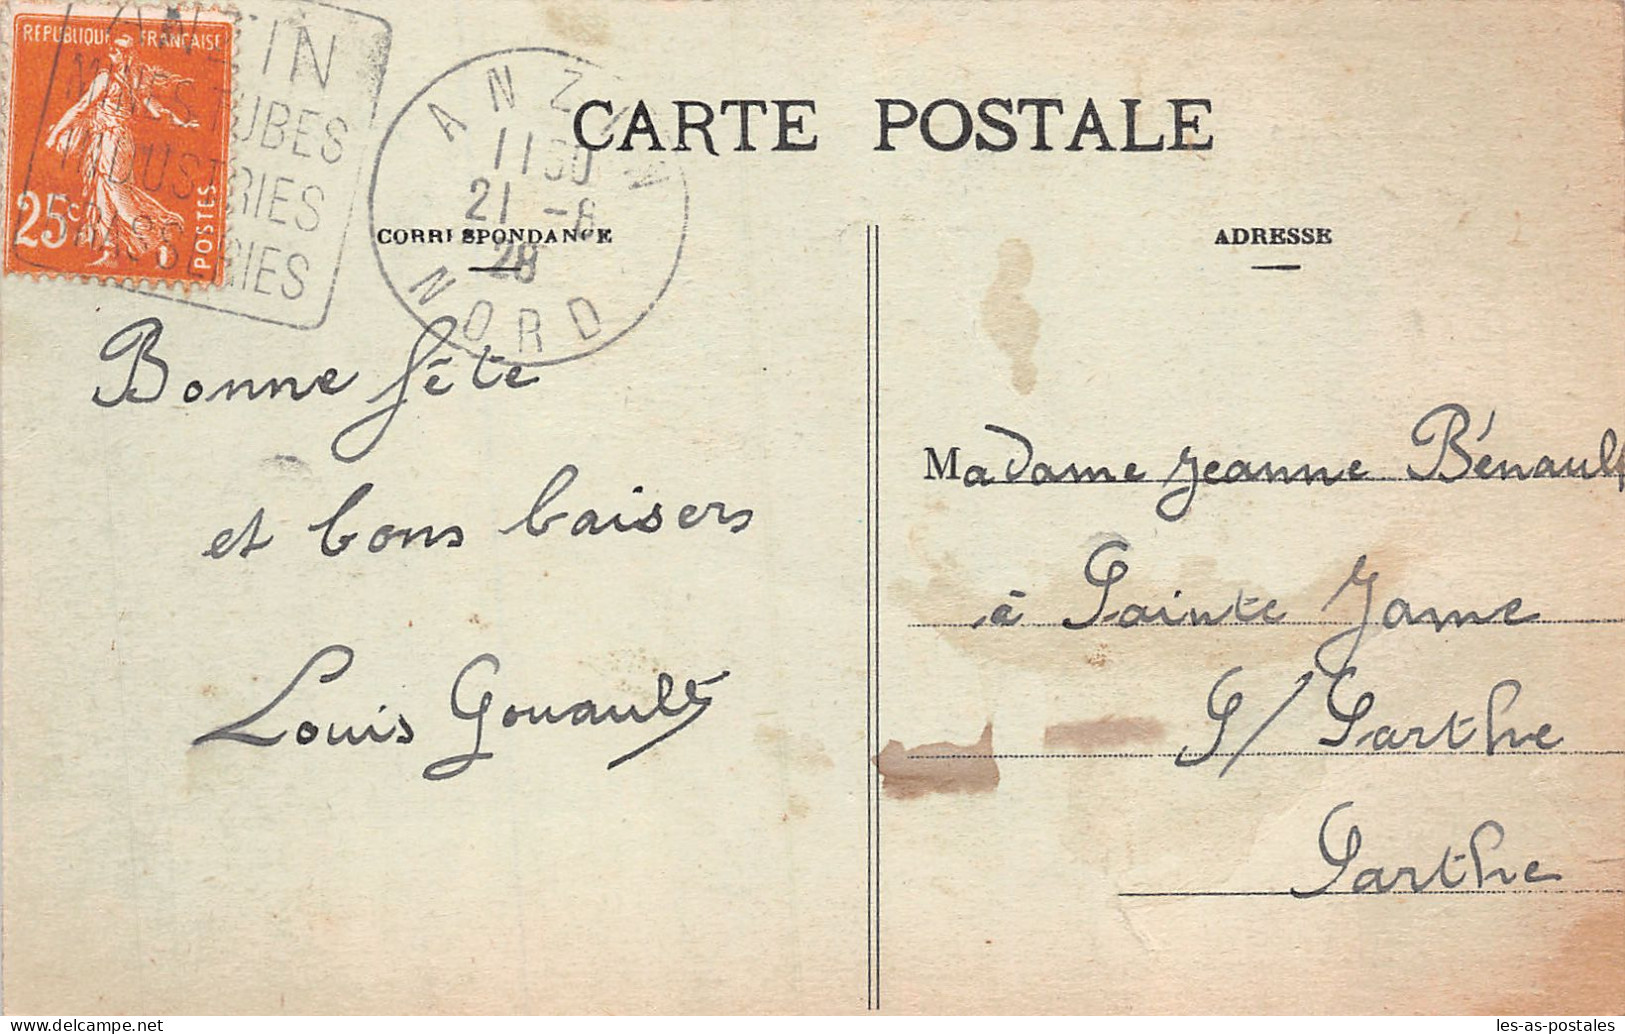 REPUBLIQUE FRANÇAISE
25c
POSTES
ANZIN
MINES TUBES
INDUSTRIES
BRASSERIES
ANZIN
11 30
21 -8
28
NORD
CARTE POSTALE
CORRESPONDANCE
ADRESSE
Bonne fête
et bons baisers
Louis Gouault
Madame Jeanne Bénault
à Sainte Jame
S/ Sarthe
Sarthe
les-as-postales
delcampe.net